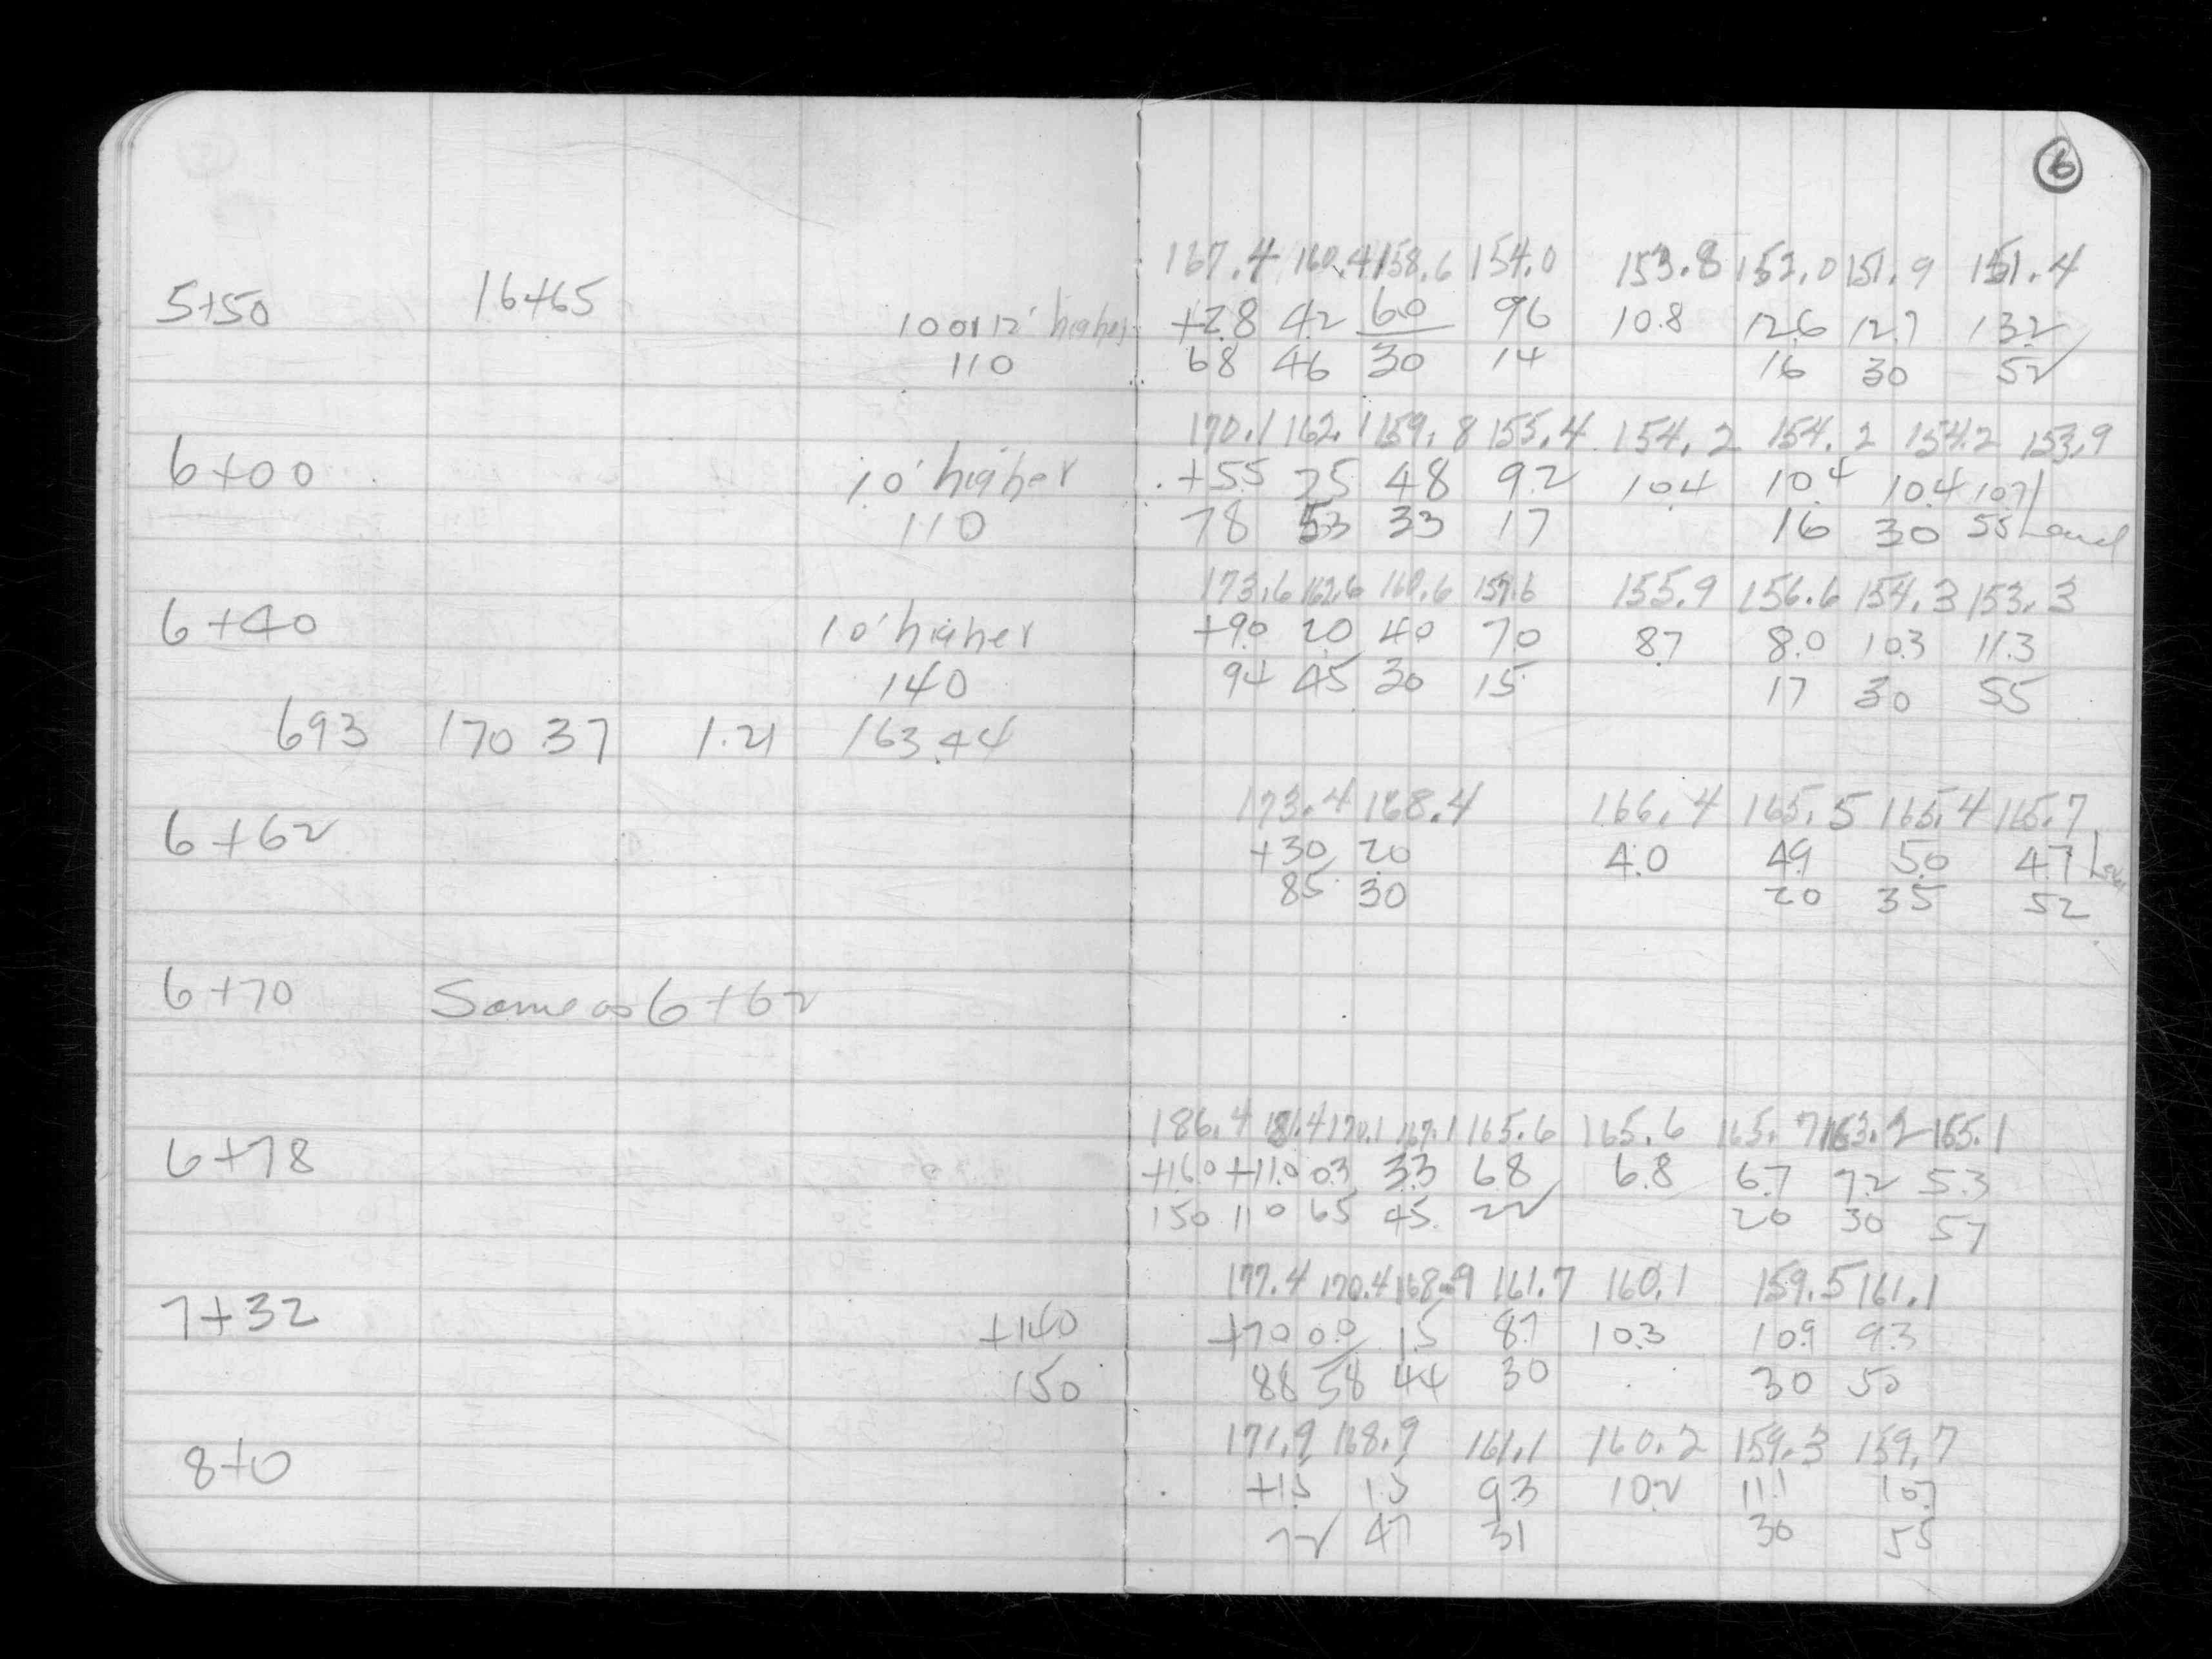 6
167.4 160.4 158.6 154.0 153.8 152.0 151.9 151.4
5+50 16+65 10 or 12' higher +2.8 4.2 6.0 9.6 10.8 12.6 12.7 13.2
110 68 46 30 14 16 30 52
170.1 162.1 159.8 155.4 154.2 154.2 154.2 153.9
6+00 10' higher +5.5 2.5 4.8 9.2 10.4 10.4 10.4 10.7
110 78 53 33 17 16 30 55 Level
173.6 162.6 160.6 157.6 155.9 156.6 154.3 153.3
6+40 10' higher +9.0 2.0 4.0 7.0 8.7 8.0 10.3 11.3
140 94 45 30 15 17 30 55
693 170.37 1.21 163.44
173.4 168.4 166.4 165.5 165.4 165.7
6+62 +30 20 4.0 4.9 5.0 4.7 Level
85 30 20 35 52
6+70 Same as 6+62
186.4 181.4 170.1 167.1 165.6 165.6 165.7 163.2 165.1
6+78 +16.0 +11.0 0.3 3.3 6.8 6.8 6.7 7.2 5.3
150 110 65 45 22 20 30 57
177.4 170.4 168.9 161.7 160.1 159.5 161.1
7+32 +140 +7.0 0.0 1.5 8.7 10.3 10.9 9.3
150 88 58 44 30 30 50
171.9 168.9 161.1 160.2 159.3 159.7
8+0 +1.5 1.5 9.3 10.2 11.1 10.7
72 47 31 30 55